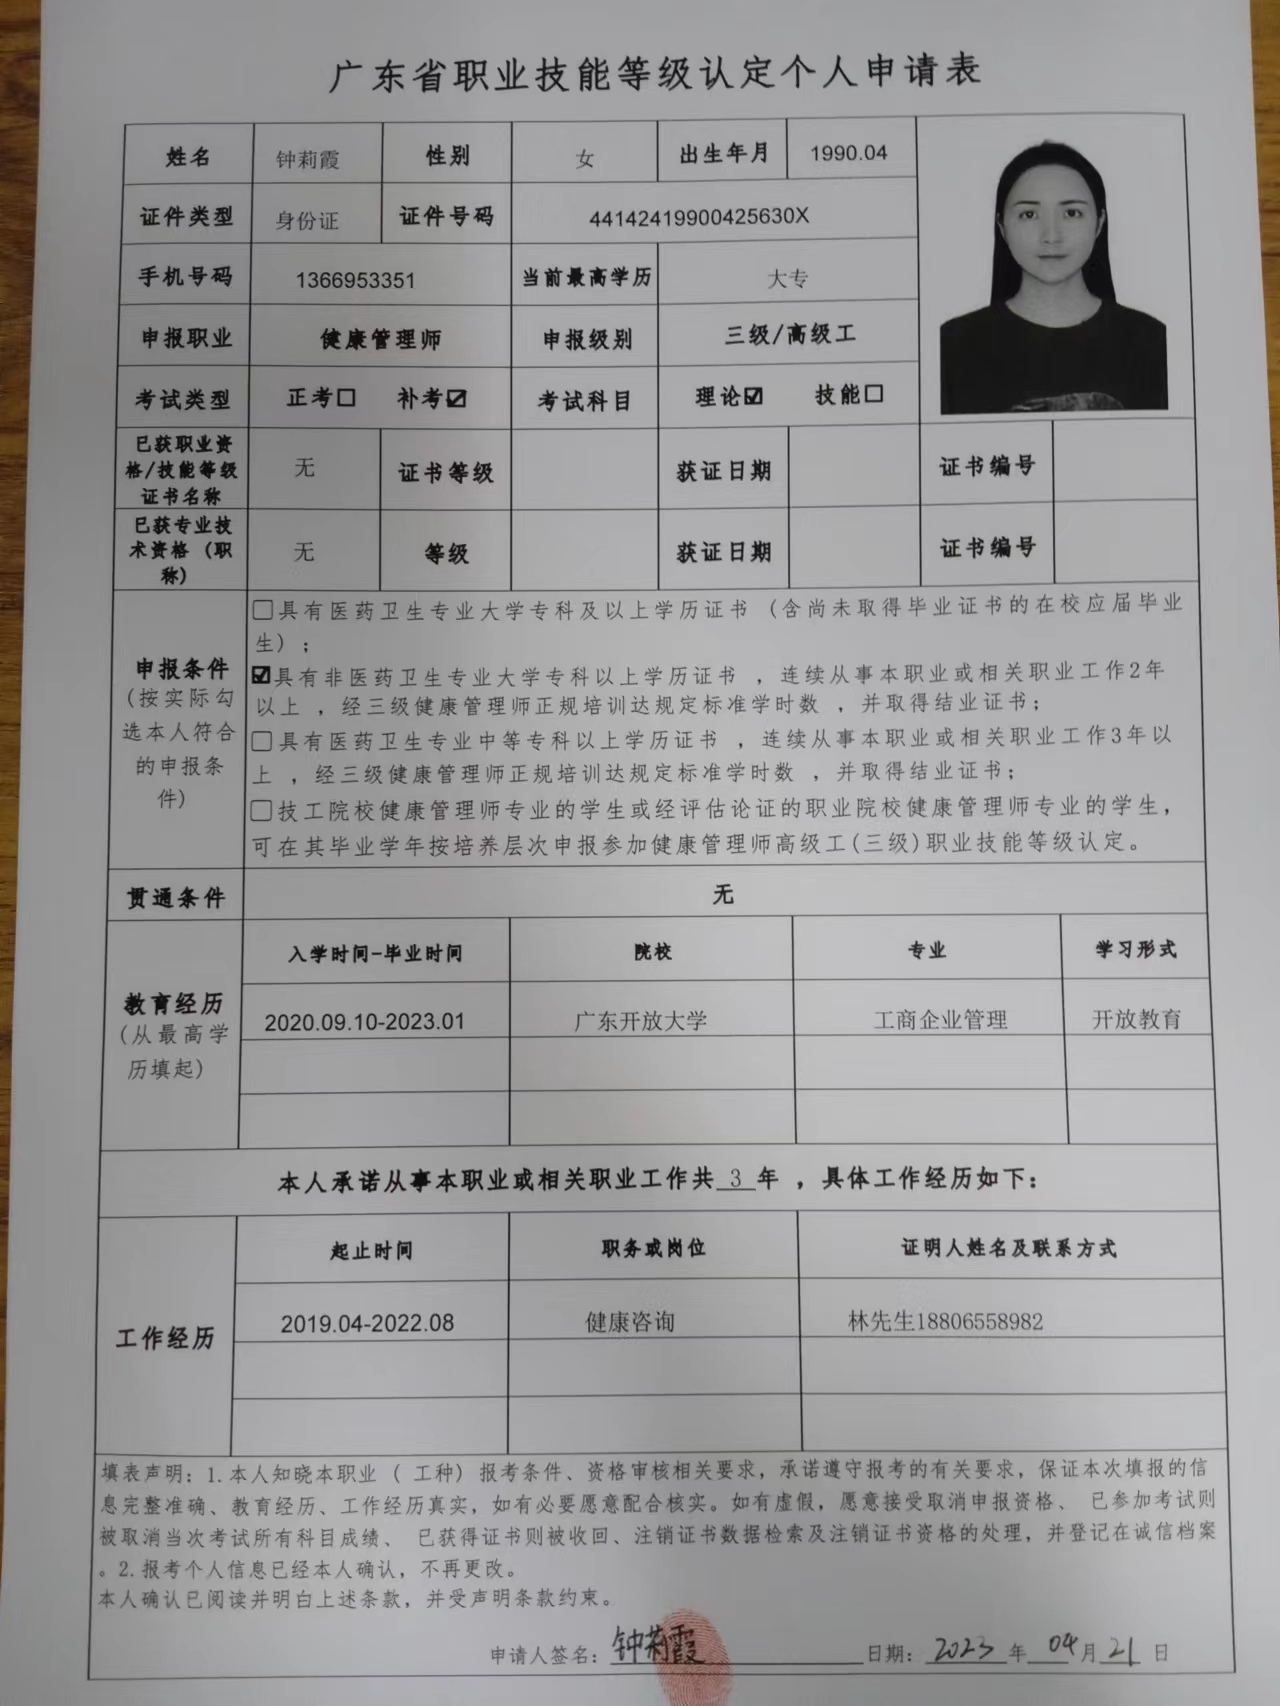 广东省职业技能等级认定个人申请表
姓名 钟莉霞 性别 女 出生年月 1990.04
证件类型 身份证 证件号码 44142419900425630X
手机号码 1366953351 当前最高学历 大专
申报职业 健康管理师 申报级别 三级/高级工
考试类型 正考☐ 补考☑ 考试科目 理论☑ 技能☐
已获职业资
格/技能等级
证书名称
无 证书等级 获证日期 证书编号
已获专业技
术资格（职
称）
无 等级 获证日期 证书编号
申报条件
(按实际勾
选本人符合
的申报条
件)
☐具有医药卫生专业大学专科及以上学历证书（含尚未取得毕业证书的在校应届毕业
生）；
☑具有非医药卫生专业大学专科以上学历证书，连续从事本职业或相关职业工作2年
以上，经三级健康管理师正规培训达规定标准学时数，并取得结业证书；
☐具有医药卫生专业中等专科以上学历证书，连续从事本职业或相关职业工作3年以
上，经三级健康管理师正规培训达规定标准学时数，并取得结业证书；
☐技工院校健康管理师专业的学生或经评估论证的职业院校健康管理师专业的学生，
可在其毕业学年按培养层次申报参加健康管理师高级工(三级)职业技能等级认定。
贯通条件 无
教育经历
(从最高学
历填起)
入学时间-毕业时间 院校 专业 学习形式
2020.09.10-2023.01 广东开放大学 工商企业管理 开放教育
本人承诺从事本职业或相关职业工作共 3 年，具体工作经历如下：
工作经历
起止时间 职务或岗位 证明人姓名及联系方式
2019.04-2022.08 健康咨询 林先生18806558982
填表声明：1.本人知晓本职业（工种）报考条件、资格审核相关要求，承诺遵守报考的有关要求，保证本次填报的信
息完整准确、教育经历、工作经历真实，如有必要愿意配合核实。如有虚假，愿意接受取消申报资格、已参加考试则
被取消当次考试所有科目成绩、已获得证书则被收回、注销证书数据检索及注销证书资格的处理，并登记在诚信档案
。2.报考个人信息已经本人确认，不再更改。
本人确认已阅读并明白上述条款，并受声明条款约束。
申请人签名：钟莉霞 日期：2023年04月21日